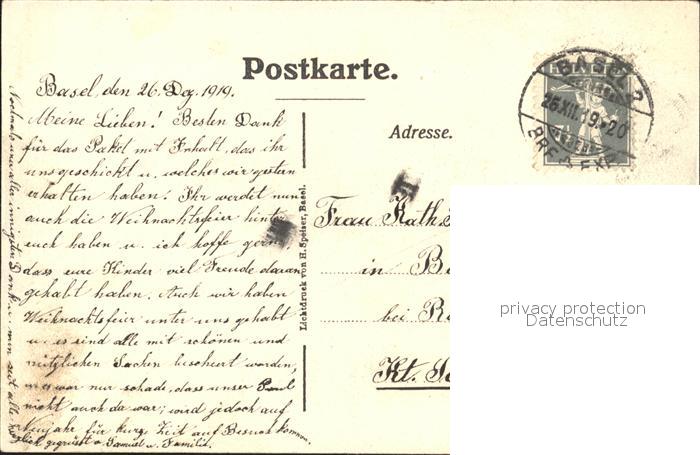 Postkarte.
Basel, den 26. Dez. 1919.
Meine Lieben! Besten Dank
für das Paket mit Inhalt, das ihr
uns geschickt u. welches wir gestern
erhalten haben! Ihr werdet nun
auch die Weihnachtsfeier hinter
euch haben u. ich hoffe gern,
dass eure Kinder viel Freude daran
gehabt haben. Auch wir haben
Weihnachtsfeier unter uns gehabt
u. es sind alle mit schönen und
nützlichen Sachen beschert worden,
nur schade, dass unser Paul
nicht auch da war; wird jedoch auf
Neujahr für kurze Zeit auf Besuch kommen.
gegrüsst v. Samuel u. Familie.
Nochmals euch allen innigsten Dank u.
Lichtdruck von H. Speiser, Basel.
Adresse.
Frau Kath.
in B
bei R
Kt.
BASEL 2
26.XII.19.-20
BRF. EXP.
privacy protection
Datenschutz